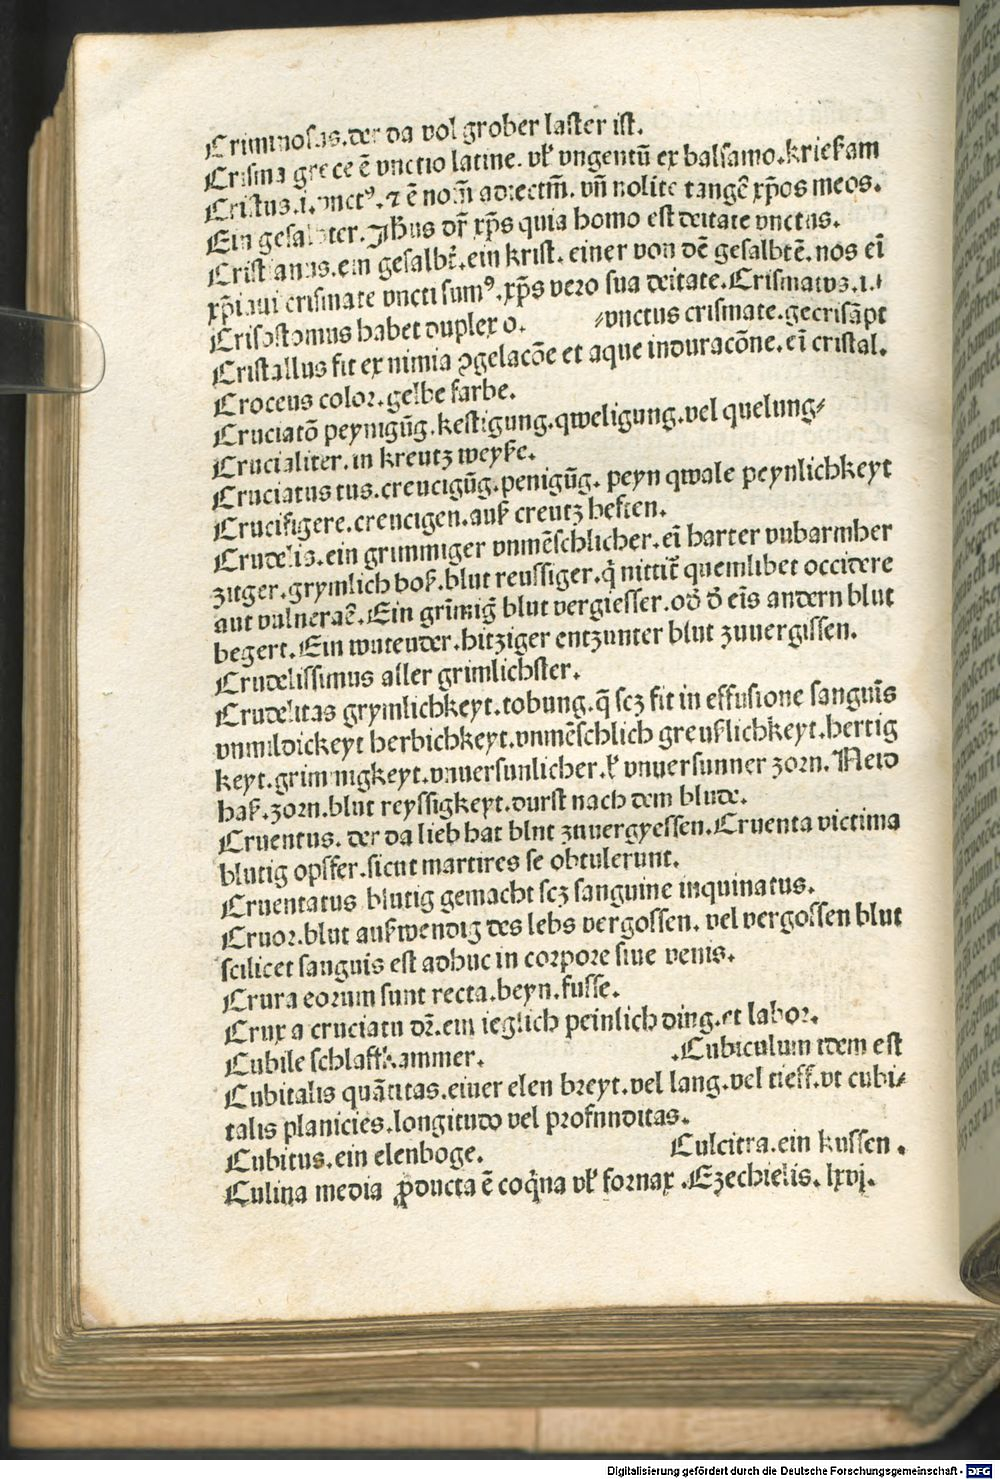 Criminosus.der da vol grober laster ist.
Crisma grece ē vnctio latine. vl' vngentū ex balsamo.kriesam
Cristus.i.vnctꝰ.⁊ ē nom̄ adiectm̄. vn̄ nolite tangē xp̄os meos.
Ein gesalbter.Jhūs dr̄ xp̄s quia homo est deitate vnctus.
Cristianus.ein gesalbt̄.ein krist. einer von dē gesalbtē.nos eī
xp̄iani crismate vncti sumꝰ.xp̄s vero sua deitate.Crismatus.i.
Crisostomus habet duplex o. vnctus crismate.gecrisāpt
Cristallus fit ex nimia ꝯgelacōe et aque induracōne.eī cristal.
Croceus color.gelbe farbe.
Cruciatō peynigūg.kestigung.qweligung.vel quelung
Crucialiter.in kreutz weyße.
Cruciatus tus.creucigūg.penigūg. peyn qwale peynlichkeyt
Crucifigere.creucigen.auß creutz heften.
Crudelis.ein grimmiger vnmēschlicher.eī harter vnbarmher
ziger.grymlich boß.blut reussiger.q̇ nittit̄ quemlibet occidere
aut vulneraē.Ein grīmiḡ blut vergiesser.od̄ d̄ eīs andern blut
begert.Ein wutender.hitziger entzunter blut zuuergissen.
Crudelissimus aller grimlichster.
Crudelitas grymlichkeyt.tobung.q̄ scz fit in effusione sanguīs
vnmildickeyt herbichkeyt.vnmēschlich greußlichkeyt.hertig
keyt.grimmigkeyt.vnuersunlicher.l' vnuersunner zorn.Neid
haß.zorn.blut reyssigkeyt.durst nach dem blude.
Cruentus. der da lieb hat blut zuuergyessen.Cruenta victima
blutig opffer.sicut martires se obtulerunt.
Cruentatus blutig gemacht scz sanguine inquinatus.
Cruor.blut außwendig des lebs vergossen. vel vergossen blut
scilicet sanguis est adhuc in corpore siue venis.
Crura eorum sunt recta.beyn.fusse.
Crux a cruciatu dr̄.ein ieglich peinlich ding.et labor.
Cubile schlaffkammer. .Cubiculum idem est
Cubitalis quātitas.einer elen breyt.vel lang.vel tieff.vt cubi
talis planicies.longitudo vel profunditas.
Cubitus.ein elenboge. Culcitra.ein kussen.
Culina media ꝓducta ē coq̇na vl' fornax .Ezechielis. lxvj.
Digitalisierung gefördert durch die Deutsche Forschungsgemeinschaft - DFG